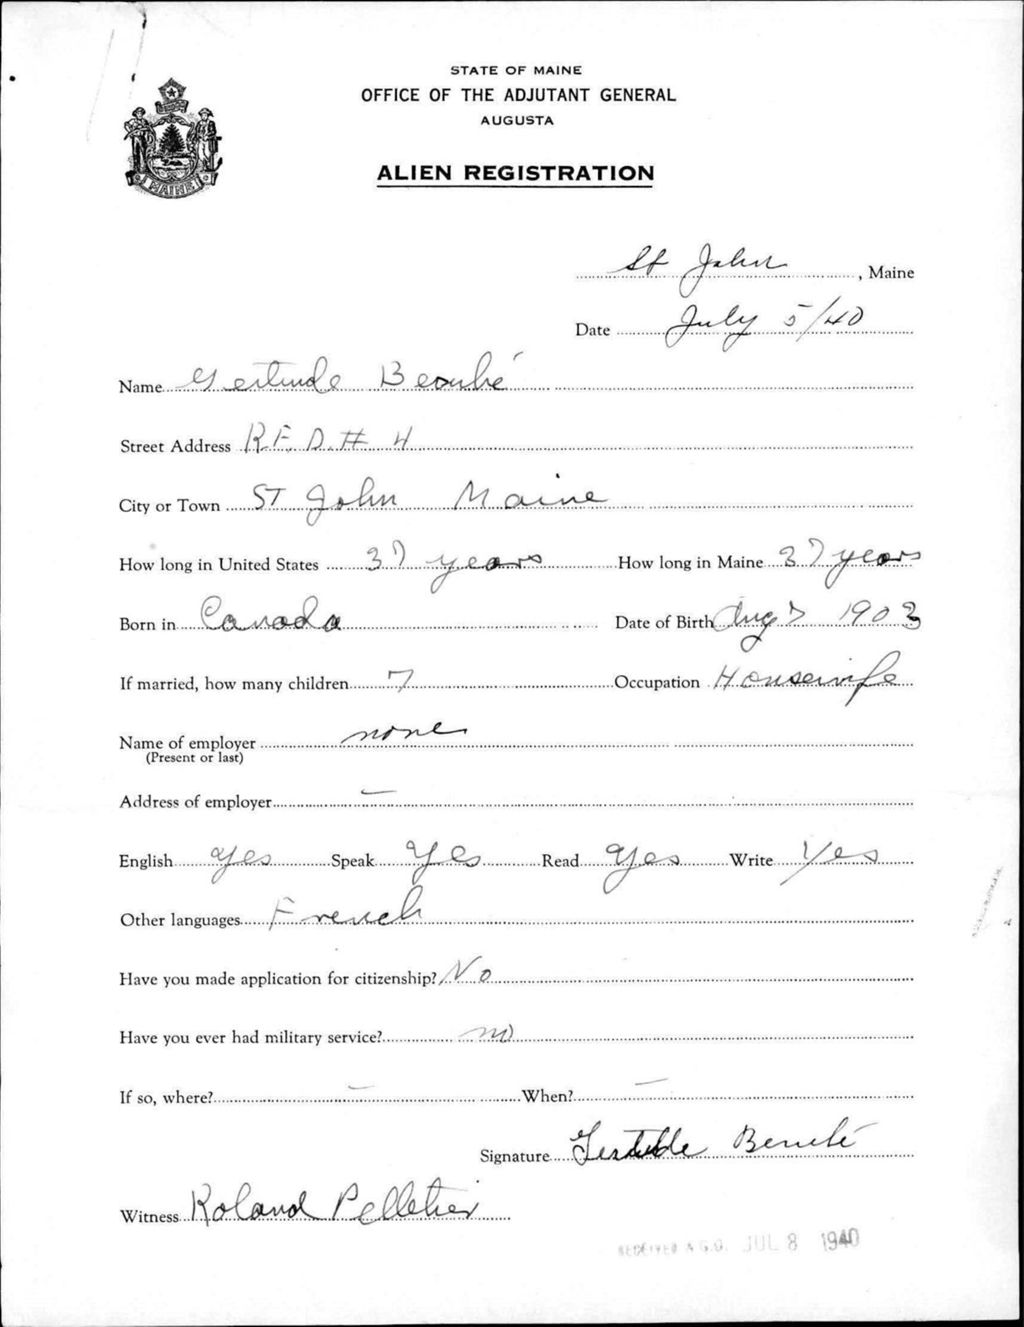 STATE OF MAINE
OFFICE OF THE ADJUTANT GENERAL
AUGUSTA
ALIEN REGISTRATION
MAINE
St John, Maine
Date July 5/40
Name Gertrude
Street Address R.F.D. # 4
City or Town ST John Maine
How long in United States 37 years How long in Maine 37 years
Born in Canada Date of Birth Aug 7 1903
If married, how many children 7 Occupation Housewife
Name of employer none
(Present or last)
Address of employer –
English Yes Speak Yes Read Yes Write Yes
Other languages French
Have you made application for citizenship? No
Have you ever had military service? no
If so, where? – When? –
Signature Gertrude
Witness Roland Pelletier
RECEIVED A.G.O. JUL 8 1940